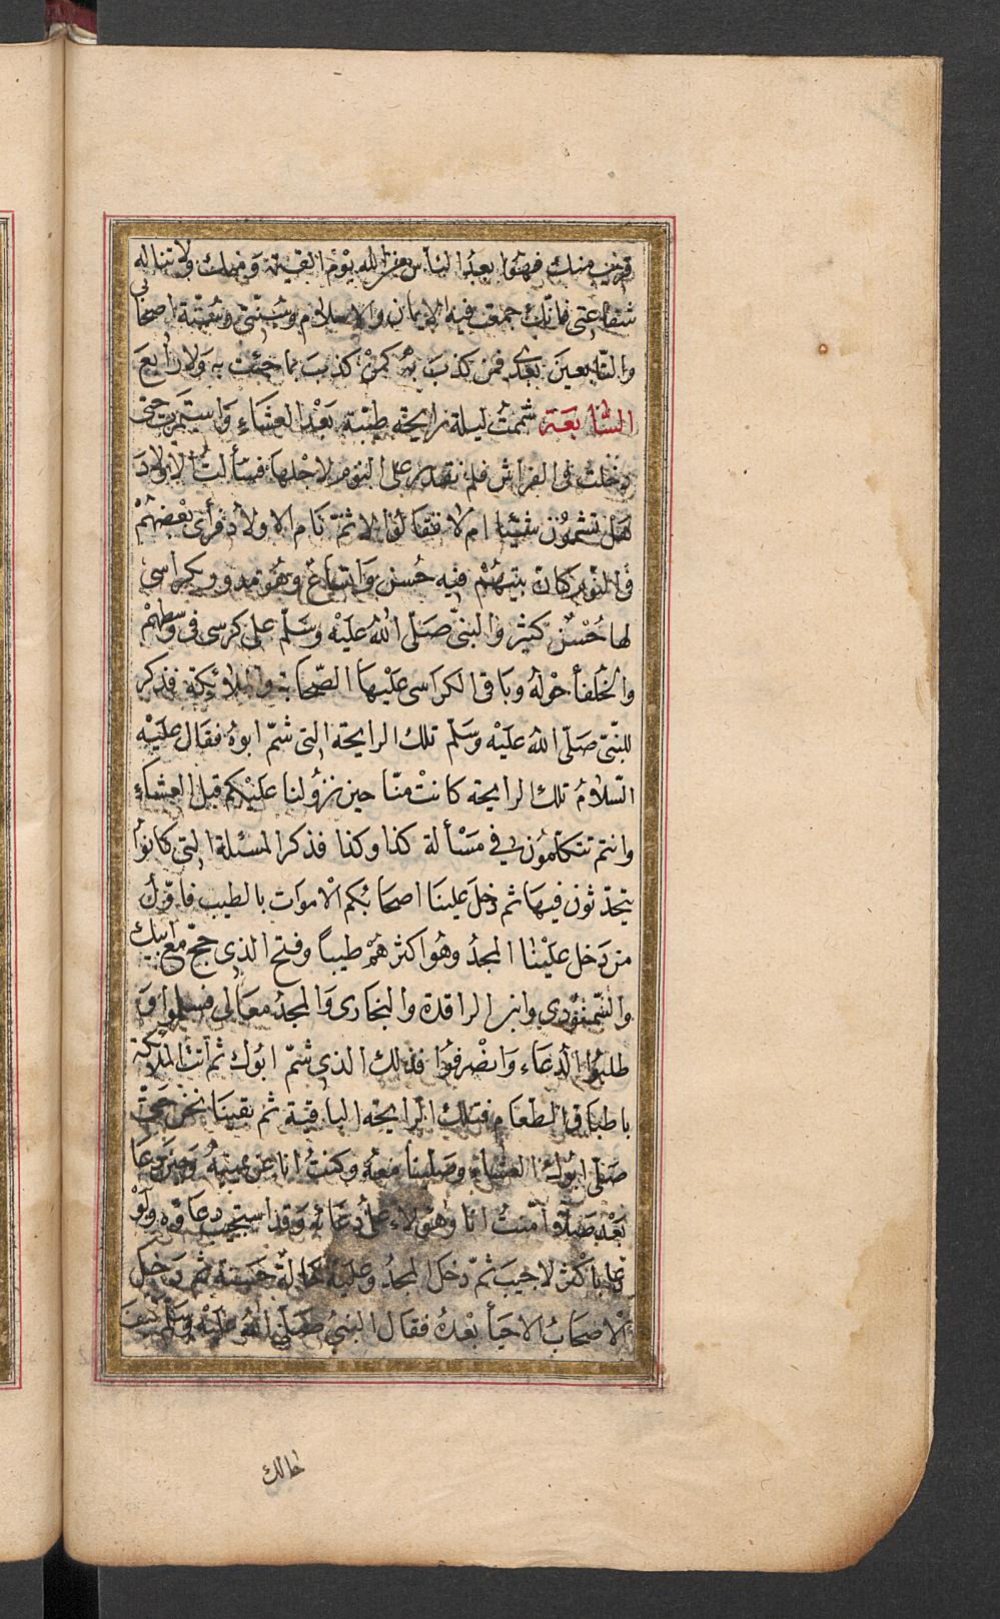 قريب منك فهو ابعد الناس من الله يوم القيمة ومنك ولا تناله
شفاعتى فانك جمعت فيه الايمان والاسلام وسنتى وسنة اصحابى
والتابعين بعدى فمن كذب به كمن كذب بما جئت به ولا رابع
السّابعَة شممتُ ليلة رايحة طيبة بَعْد العشَاءِ وَاستمرت حتى
دخلت فى الفراش فلم نقدر على النوم لاجلها فسألتُ الاولادَ
هَل تشمُّون شيئا ام لا فقالوا لا ثمّ نام الاولاد فرأى بعضهُمْ
فى النوم كان بيتهُمْ فيه حُسن واتساع وهُو ممدود وكراسى
لها حُسْنٌ كثير والنبىّ صَلّى اللهُ عَليْه وسَلّم على كرسى فى وسطِهمْ
والخلفأ حَوْلهُ وباقى الكراسى عَليْها الصّحابة والملائكة فذكر
للنبىّ صَلّى اللهُ عَليْه وسَلّم تلك الرايحة التى شمّ ابوهُ فقال عليْه
السّلامُ تلك الرايحة كانتْ منّا حين نزُولنا علَيْكم قبل العشاءِ
وانتم تتكلّمُون فى مَسْألة كذا وكذا فذكر المسئلة التى كانوُا
يتحدّثون فيهَا ثم دخلَ علينَا اصحَابُكم الْاموَات بالطيب فاوّلُ
من دَخل علَيْنا المجدُ وهُو اكثرهُمْ طيباً وفتح الذى حجّ مع ابيك
والسّمنوُدى وابن الراقدة والبخارى وَالمجدُ معَالى فسلموا وَ
طلبُوا الدعَاء وَانصْرفوُا فذلك الذى شمّ ابُوك ثم أتت الملائكة
باطباق الطّعام فتلك الرايحة الباقية ثم بقينَا نحن حَتّى
صَلّى ابُوك العشاء وصَلينا معَهُ وكنتُ انا عن يمينهُ وَحين دعَا
بعْد صَلاته أمنتُ انا وهؤلاء علىُ دعَائه وَقد استجيب دعَاؤه ولَوْ
دعا باكثر لاجيبَ ثمّ دخل المجدُ وعليه حالةٌ حسنة ثم دَخلَ
الاصحَابُ الاحيأ بعْدهُ فقال النبىُ صَلّى اللهُ عَليْه وسَلّم كيف
حالك